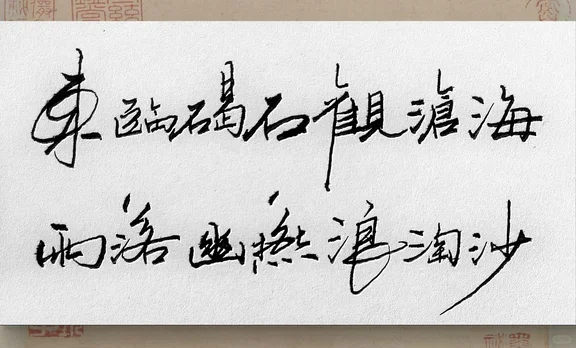 東臨碣石觀滄海
雨落幽燃浪淘沙